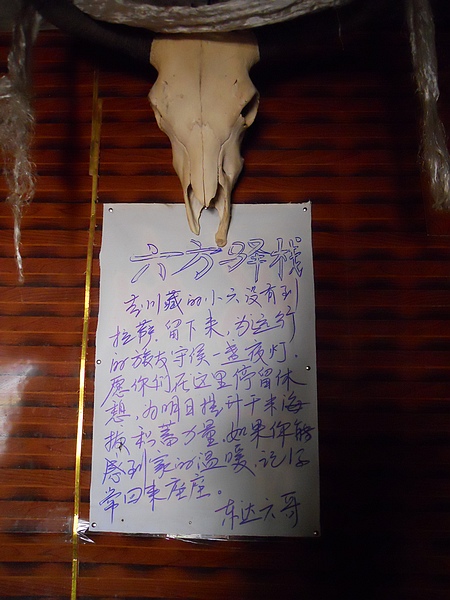 六方驿栈
去川藏的小六没有到
拉萨.留下来,为远行
的旅友守候一盏夜灯.
愿你们在这里停留休
憩,为明日攀升千米海
拔积蓄力量,如果你能
感到家的温暖,记得
常回来座座。
东达六哥